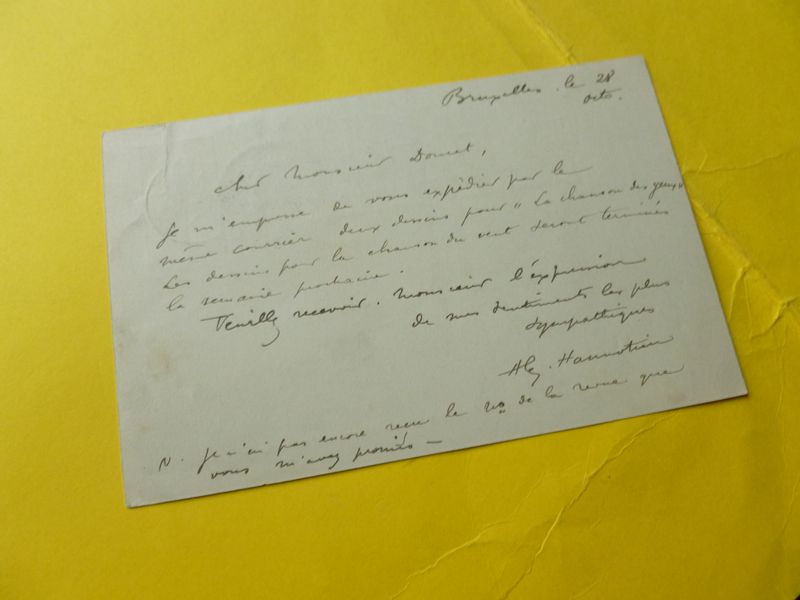 Bruxelles. le 28
octo.
Cher Monsieur Doucet,
Je m'empresse de vous expédier par le
même courrier deux dessins pour "La chanson des gueux"
Les dessins pour la chanson du vent seront terminés
la semaine prochaine.
Veuillez recevoir. Monsieur l'expression
de mes sentiments les plus
sympathiques
Alex. Hannotiau
N. Je n'ai pas encore reçu le no de la revue que
vous m'avez promis —